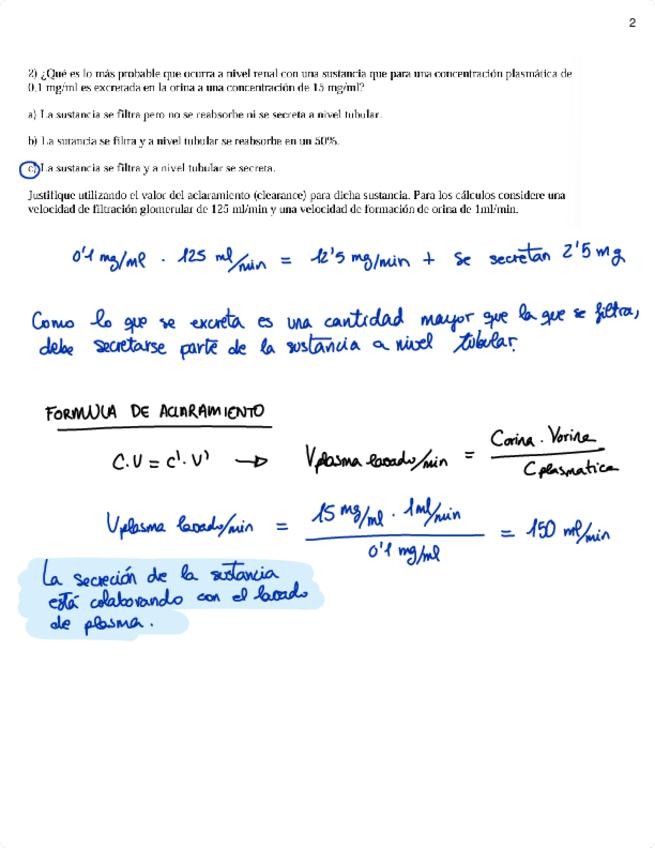 2
2) ¿Qué es lo más probable que ocurra a nivel renal con una sustancia que para una concentración plasmática de
0,1 mg/ml es excretada en la orina a una concentración de 15 mg/ml?
a) La sustancia se filtra pero no se reabsorbe ni se secreta a nivel tubular.
b) La sutancia se filtra y a nivel tubular se reabsorbe en un 50%.
c) La sustancia se filtra y a nivel tubular se secreta.
Justifique utilizando el valor del aclaramiento (clearance) para dicha sustancia. Para los cálculos considere una
velocidad de filtración glomerular de 125 ml/min y una velocidad de formación de orina de 1ml/min.
0'1 mg/ml · 125 ml/min = 12'5 mg/min + se secretan 2'5 mg
Como lo que se excreta es una cantidad mayor que la que se filtra,
debe secretarse parte de la sustancia a nivel tubular.
FORMULA DE ACLARAMIENTO
C.V = C'. V' → Vplasma lavado/min = Corina . Vorina / Cplasmatica
Vplasma lavado/min = 15 mg/ml · 1ml/min / 0'1 mg/ml = 150 ml/min
La secreción de la sustancia
está colaborando con el lavado
de plasma.